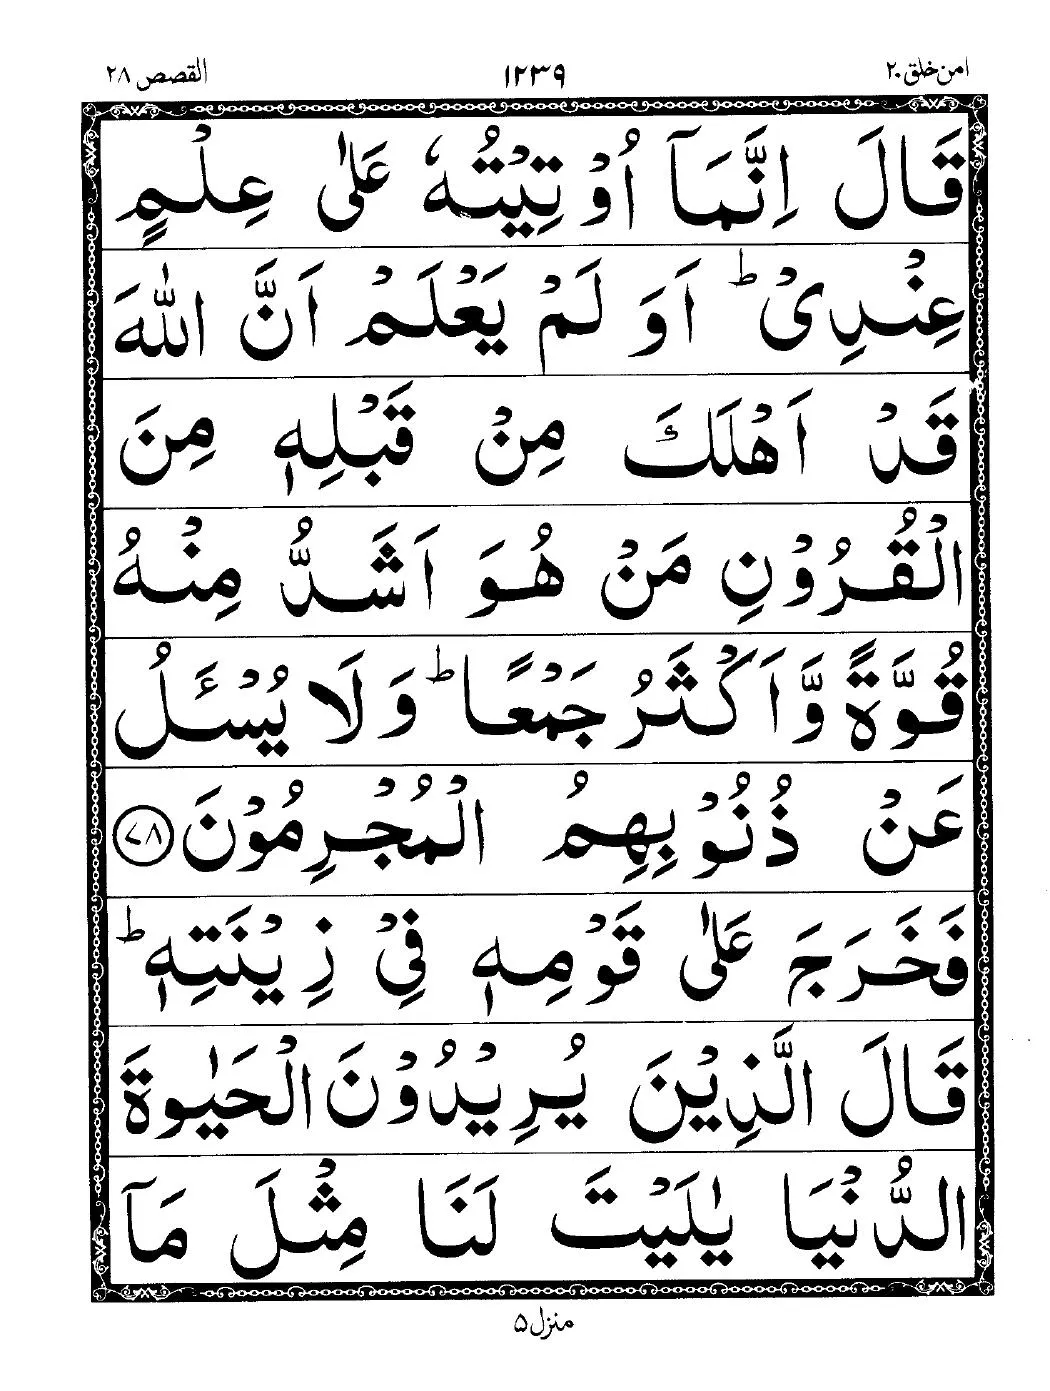 امن خلق ۲۰
۱۲۳۹
القصص ۲۸
قَالَ اِنَّمَاۤ اُوْتِیْتُهٗ عَلٰی عِلْمٍ
عِنْدِیْ ؕ اَوَ لَمْ یَعْلَمْ اَنَّ اللّٰهَ
قَدْ اَهْلَكَ مِنْ قَبْلِهٖ مِنَ
الْقُرُوْنِ مَنْ هُوَ اَشَدُّ مِنْهُ
قُوَّةً وَّ اَكْثَرُ جَمْعًا ؕ وَ لَا یُسْـَٔلُ
عَنْ ذُنُوْبِهِمُ الْمُجْرِمُوْنَ ۷۸
فَخَرَجَ عَلٰی قَوْمِهٖ فِیْ زِیْنَتِهٖ ؕ
قَالَ الَّذِیْنَ یُرِیْدُوْنَ الْحَیٰوةَ
الدُّنْیَا یٰلَیْتَ لَنَا مِثْلَ مَاۤ
منزل ۵